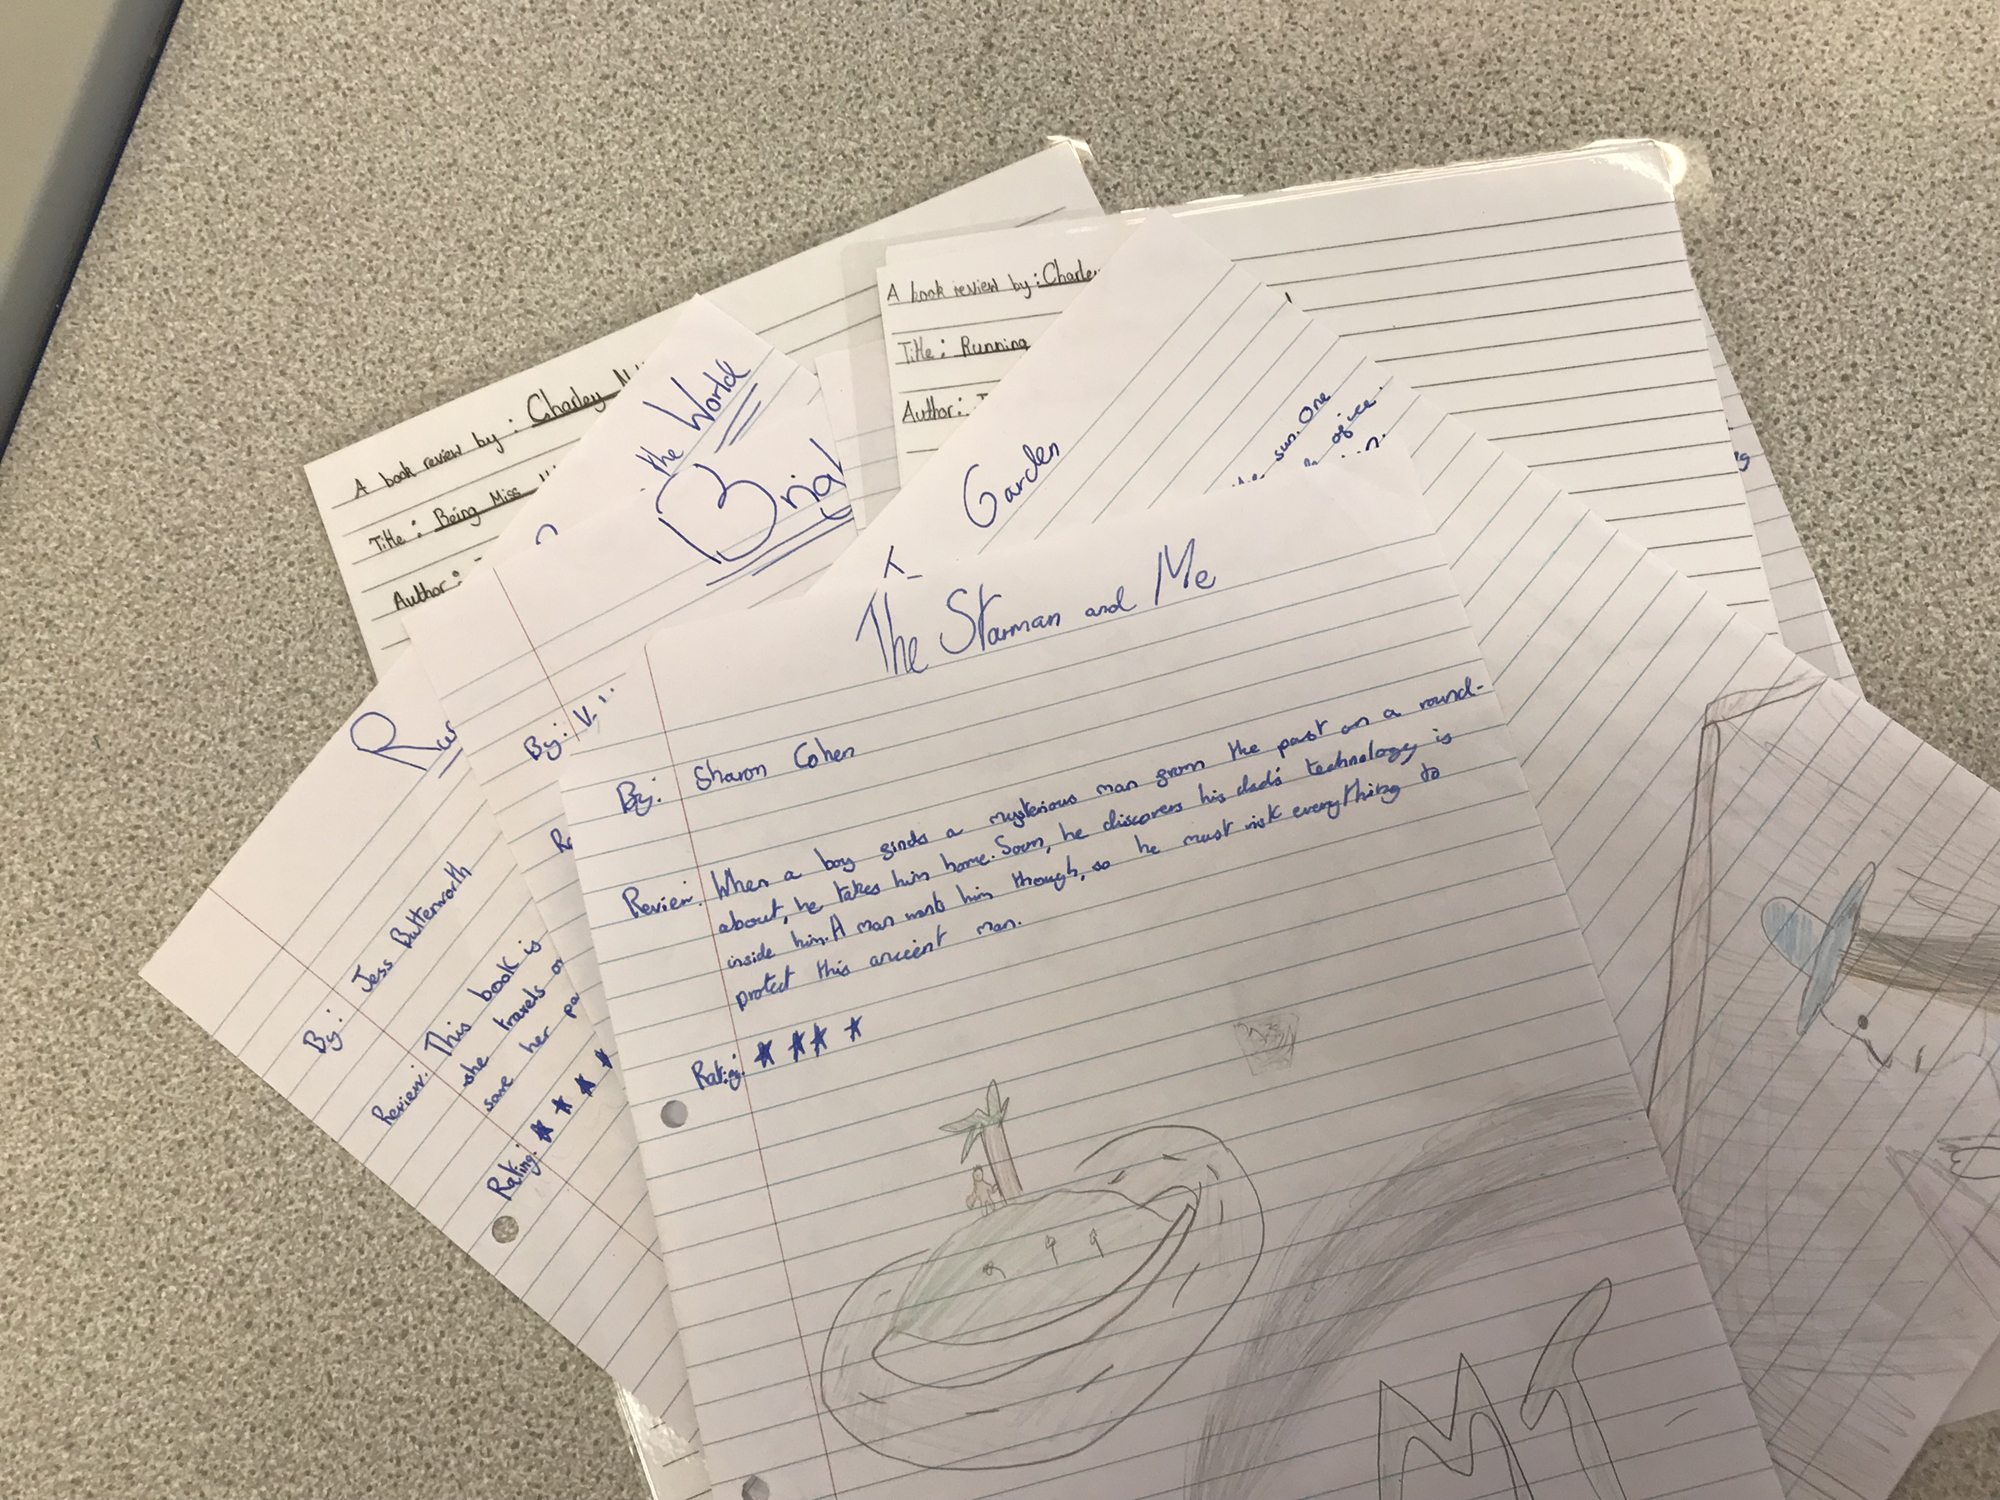 A book review by: Charley
Title: Being Miss
Author:
A book review by: Charley
Title: Running
Author:
the World
Brig
Garden
the sun. One
of ice.
By: V.
By: Jess Butterworth
Review: This book is
she travels
save her pa
Rating: ★ ★ ★ ★
The Starman and Me
By: Sharon Cohen
Review: When a boy finds a mysterious man from the past on a round-
about, he takes him home. Soon, he discovers his dad's technology is
inside him. A man wants him though, so he must risk everything to
protect this ancient man.
Rating: ★ ★ ★ ★